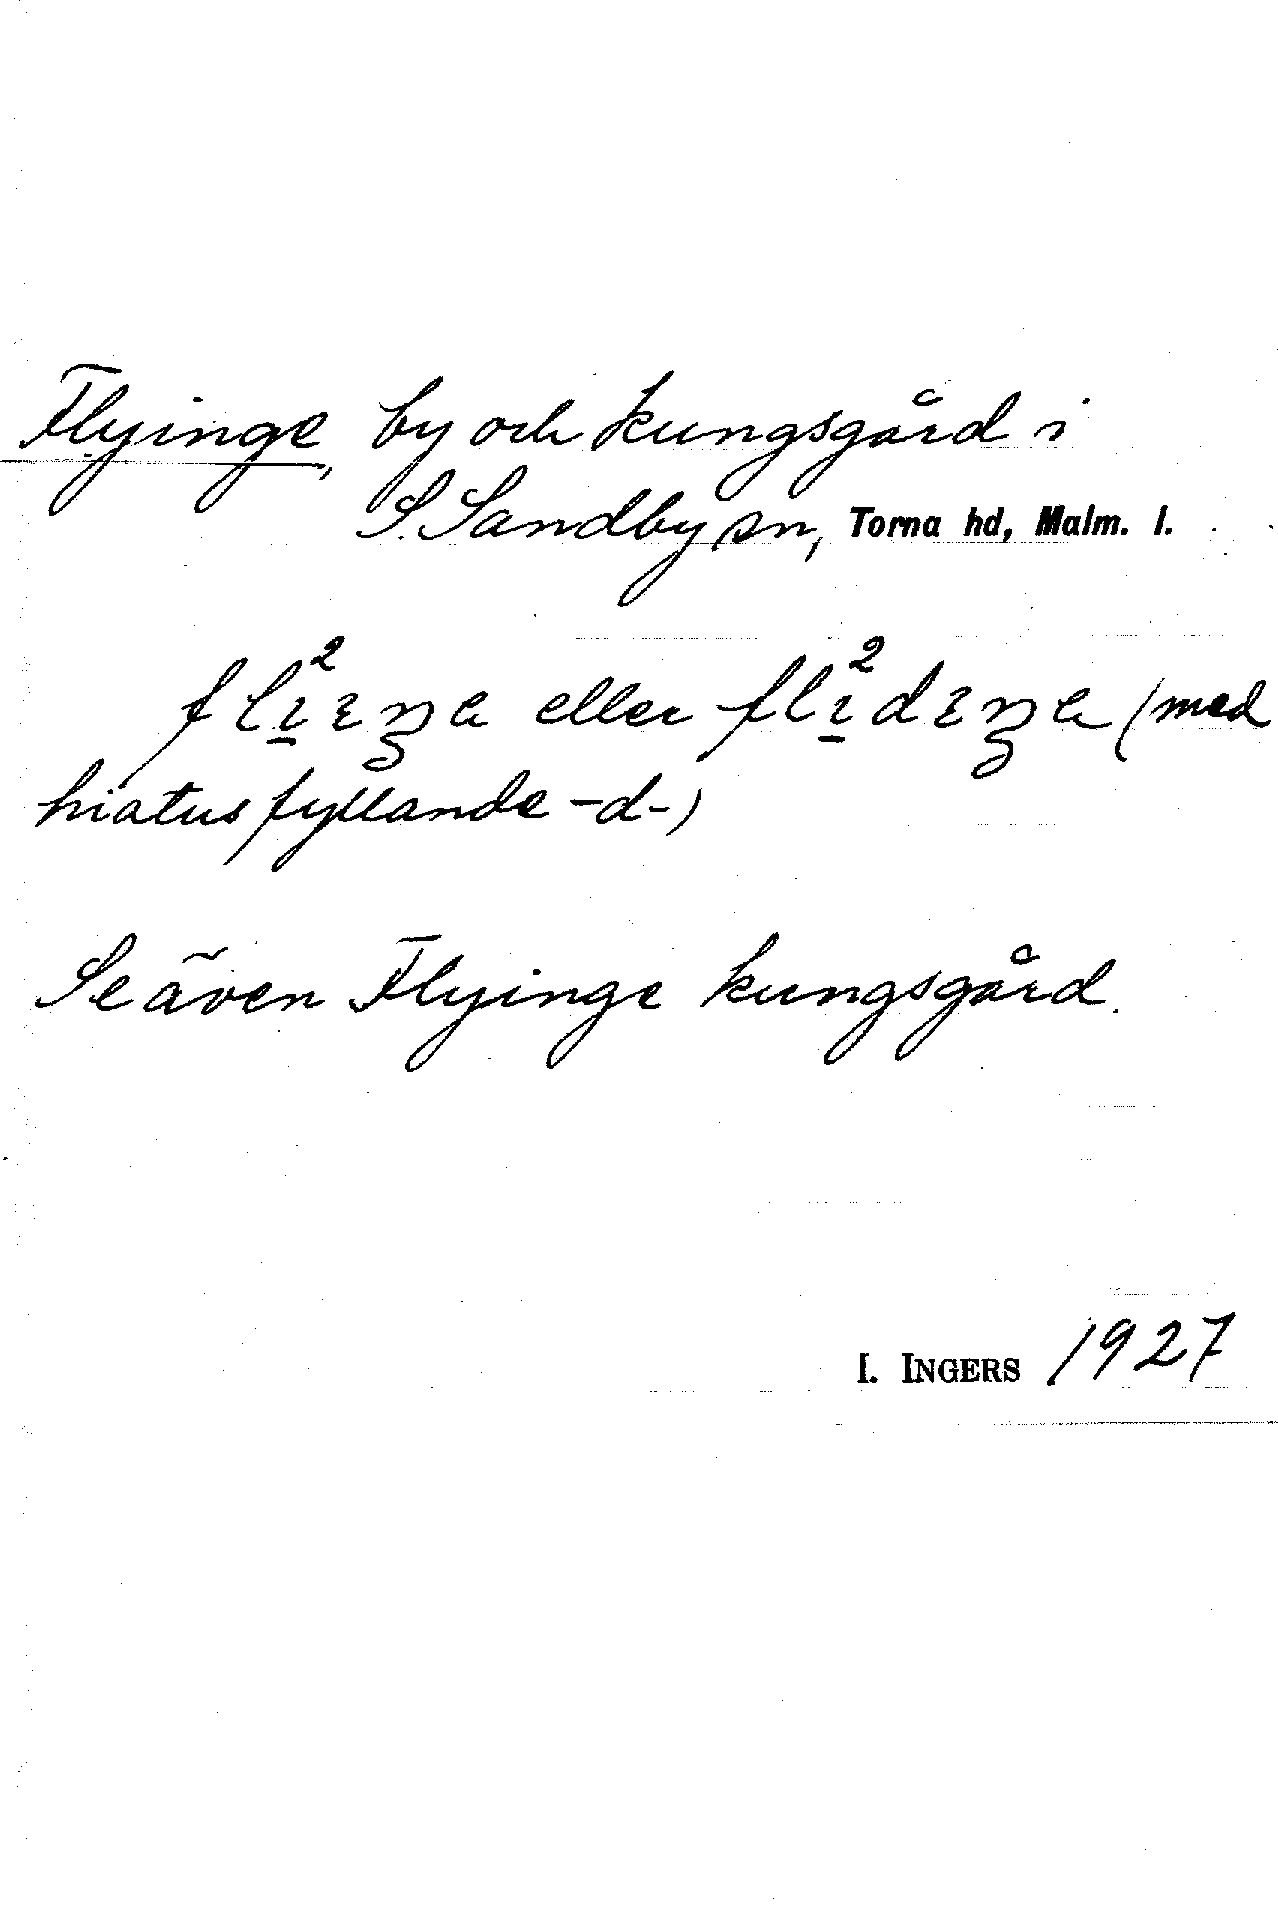 Flyinge, by och kungsgård i
S. Sandby sn, Torna hd, Malm. l.
flɪ̲²ɛŋa eller flɪ̲²dɛŋa (med
hiatusfyllande -d-)
Se även Flyinge kungsgård.
I. INGERS 1927